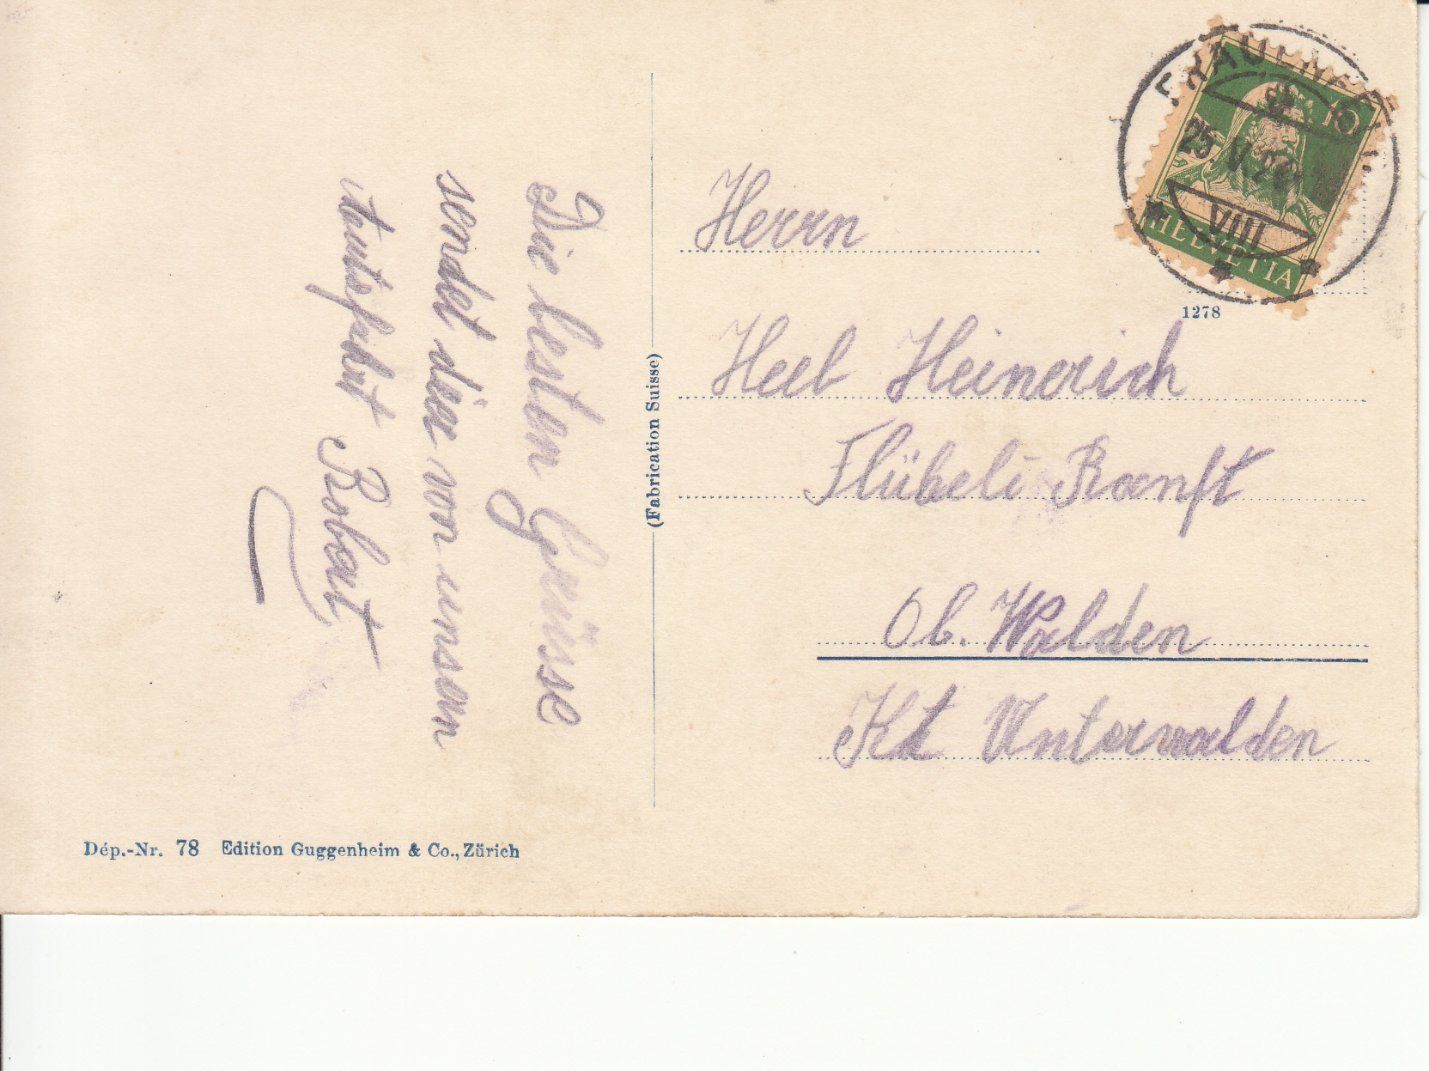 Die besten Grüsse
sendet dir von unser
Amtsfahrt Robert
Herrn
Heeb Heinerich
Flübeli-Ranft
Ob. Walden
Kt Unterwalden
(Fabrication Suisse)
1278
10
HELVETIA
25.V.
VIII
Dép.-Nr. 78 Edition Guggenheim & Co., Zürich